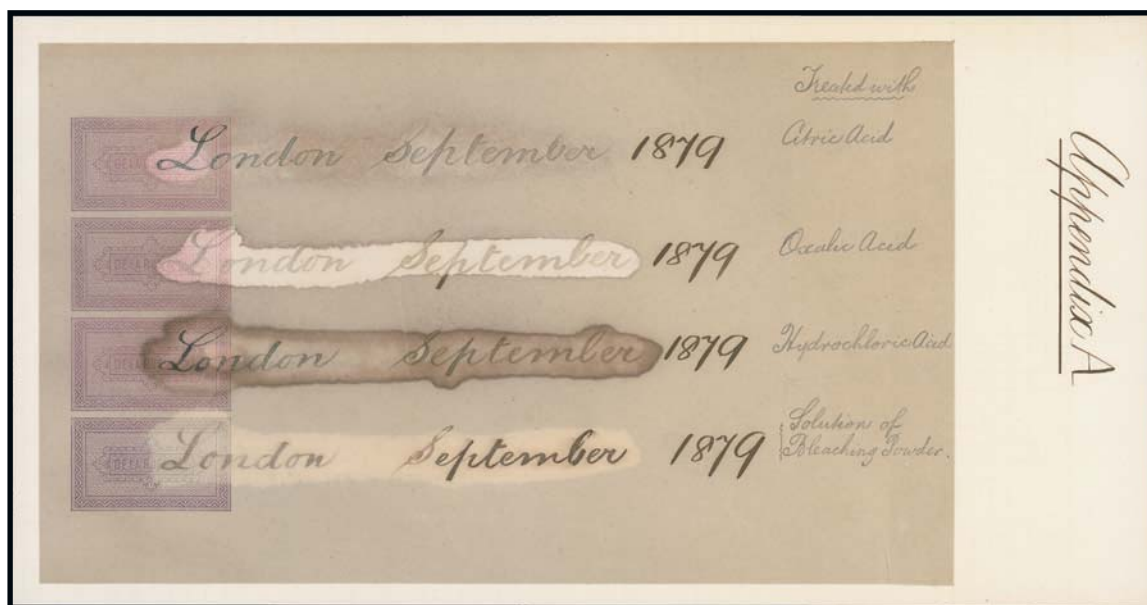 Treated with
London September 1879 Citric Acid
London September 1879 Oxalic Acid
London September 1879 Hydrochloric Acid
London September 1879 Solution of
Bleaching Powder.
Appendix A